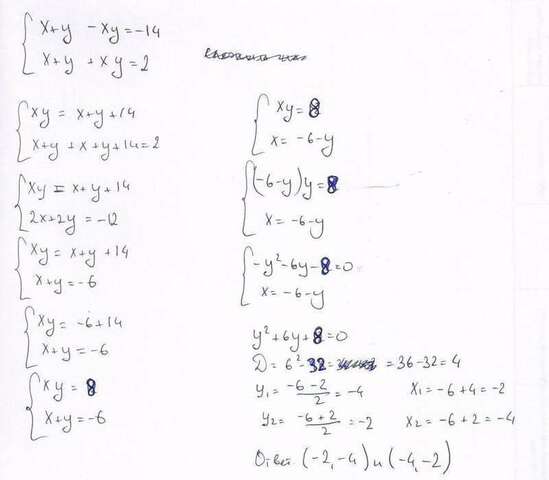 x+y - xy = -14
x+y + xy = 2
xy = x+y+14
x+y + x+y+14=2
xy = x+y+14
2x+2y = -12
xy = x+y+14
x+y = -6
xy = -6+14
x+y = -6
xy = 8
x+y = -6
xy = 8
x = -6-y
(-6-y)y = 8
x = -6-y
-y²-6y-8=0
x = -6-y
y²+6y+8=0
D = 6²-32= = 36-32=4
y₁ = (-6-2)/2 = -4 x₁ = -6+4=-2
y₂ = (-6+2)/2 = -2 x₂ = -6+2=-4
Ответ (-2,-4) и (-4,-2)